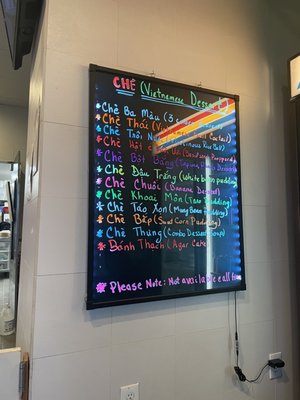 CHÈ (Vietnamese Dessert)
Chè Ba Màu (3
Chè Thái (
Chè Trôi Rice Ball)
Chè Hột
Chè Bột Báng (Tapioca
Chè Đậu Trắng (White bean pudding)
Chè Chuối (Banana Dessert)
Chè Khoai Môn (Taro Pudding)
Chè Táo Xón (Mung Bean Pudding)
Chè Bếp (Sweet Corn Pudding)
Chè Thưng (Combo Dessert Soup)
Bánh Thạch (Agar Cake)
Please Note: Not available all